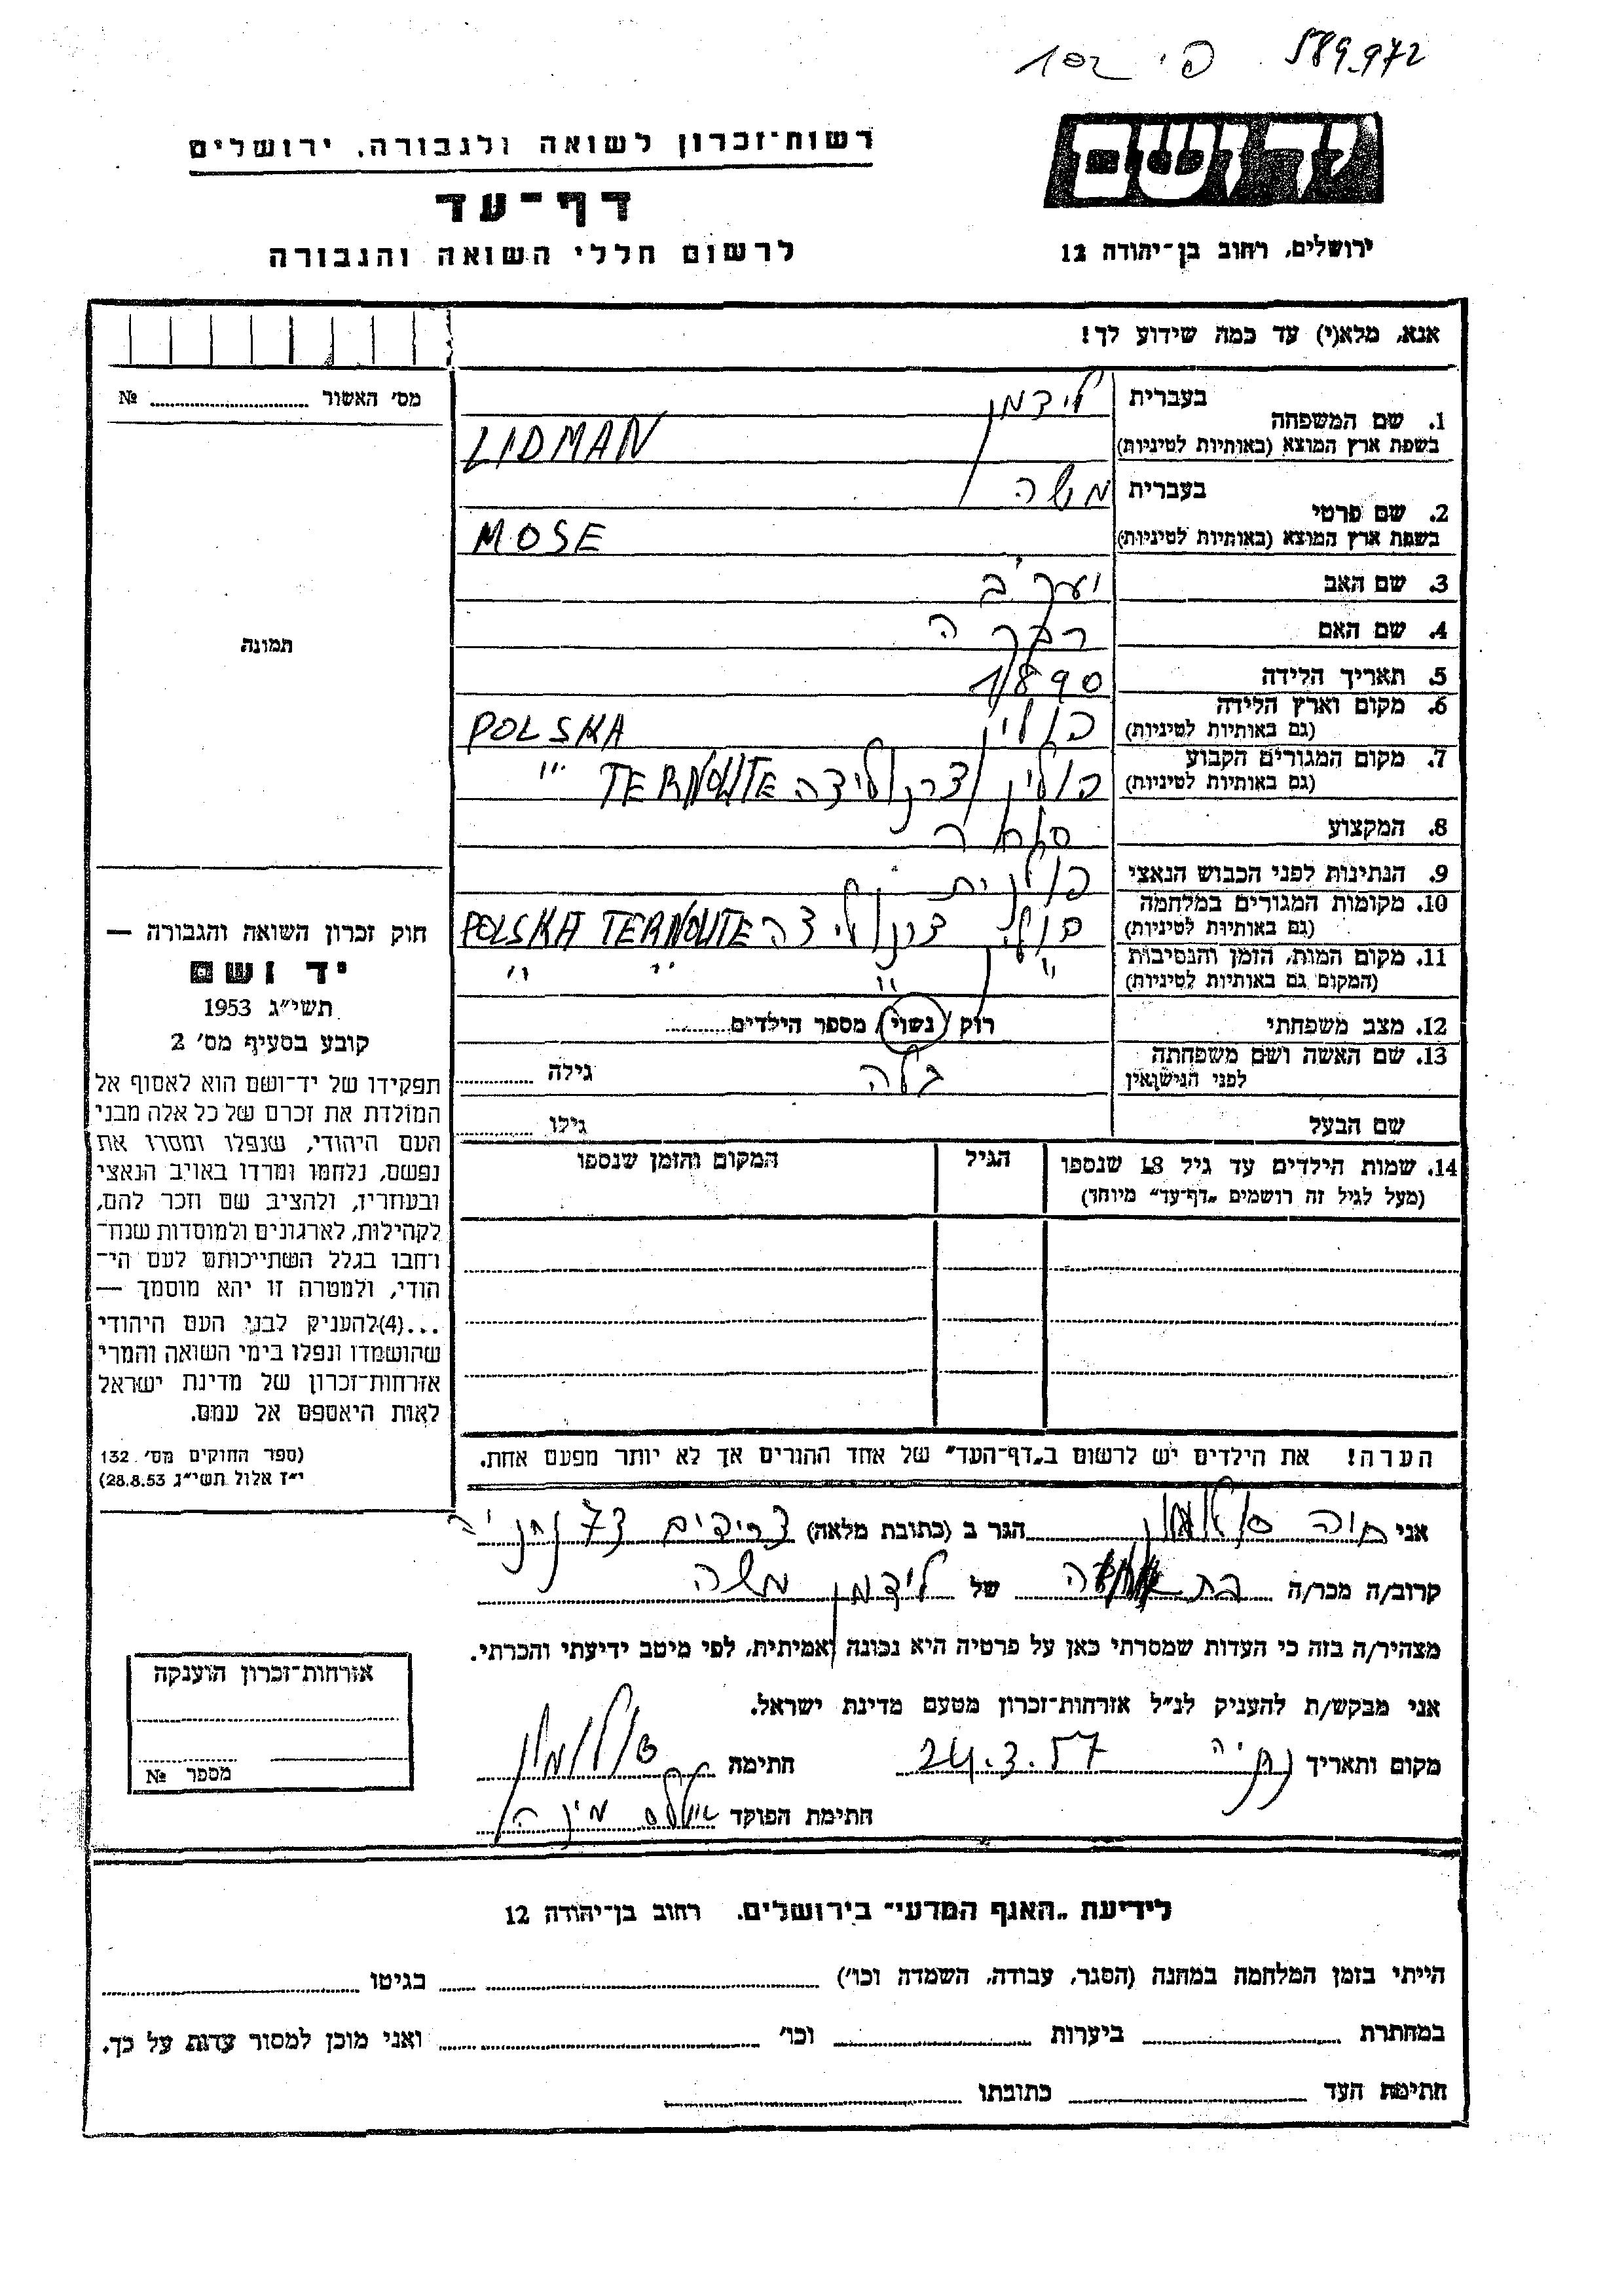 589972 פי 102
יד ושם
רשות־זכרון לשואה ולגבורה, ירושלים
דף־עד
ירושלים, רחוב בן־יהודה 12
לרשום חללי השואה והגבורה
אנא, מלא(י) עד כמה שידוע לך!
מס' האשור №
תמונה
1. שם המשפחה בעברית לידמן
בשפת ארץ המוצא (באותיות לטיניות) LIDMAN
2. שם פרטי בעברית משה
בשפת ארץ המוצא (באותיות לטיניות) MOSE
3. שם האב יעקב
4. שם האם רבקה
5. תאריך הלידה 1890
6. מקום וארץ הלידה פולין POLSKA
(גם באותיות לטיניות)
7. מקום המגורים הקבוע פולין צרנוליצה TERNOLITE "
(גם באותיות לטיניות)
8. המקצוע סוחר
9. הנתינות לפני הכבוש הנאצי פולנית
10. מקומות המגורים במלחמה פולין צרנוליצה POLSKA TERNOLITE
(גם באותיות לטיניות)
11. מקום המות, הזמן והנסיבות " " " "
(המקום גם באותיות לטיניות)
12. מצב משפחתי רוק / נשוי / מספר הילדים
13. שם האשה ושם משפחתה גילה
לפני הנישואין
שם הבעל גילו
14. שמות הילדים עד גיל 18 שנספו הגיל המקום והזמן שנספו
(מעל לגיל זה רושמים „דף־עד” מיוחד)
הערה! את הילדים יש לרשום ב„דף־העד” של אחד ההורים אך לא יותר מפעם אחת.
חוק זכרון השואה והגבורה —
יד ושם
תשי״ג 1953
קובע בסעיף מס' 2
תפקידו של יד־ושם הוא לאסוף אל
המולדת את זכרם של כל אלה מבני
העם היהודי, שנפלו ומסרו את
נפשם, נלחמו ומרדו באויב הנאצי
ובעוזריו, ולהציב שם וזכר להם,
לקהילות, לארגונים ולמוסדות שנח־
רחבו בגלל השתייכותם לעם הי־
הודי, ולמטרה זו יהא מוסמך —
...(4)להעניק לבני העם היהודי
שהושמדו ונפלו בימי השואה והמרי
אזרחות־זכרון של מדינת ישראל
לאות היאספם אל עמם.
(ספר החוקים מס' 132
י״ז אלול תשי״ג 28.8.53)
אני חוה סולומון הגר ב (כתובת מלאה) צריפים 73 נתניה
קרוב/ה מכר/ה בת של לידמן משה
מצהיר/ה בזה כי העדות שמסרתי כאן על פרטיה היא נכונה ואמיתית, לפי מיטב ידיעתי והכרתי.
אני מבקש/ת להעניק לנ״ל אזרחות־זכרון מטעם מדינת ישראל.
מקום ותאריך נתניה 24.3.57 חתימה סולומון
חתימת הפוקד
אזרחות־זכרון הוענקה
מספר №
לידיעת „האגף המדעי” בירושלים, רחוב בן־יהודה 12
הייתי בזמן המלחמה במחנה (הסגר, עבודה, השמדה וכו') בגיטו
במחתרת ביערות וכו' ואני מוכן למסור עדות על כך.
חתימת העד כתובתו